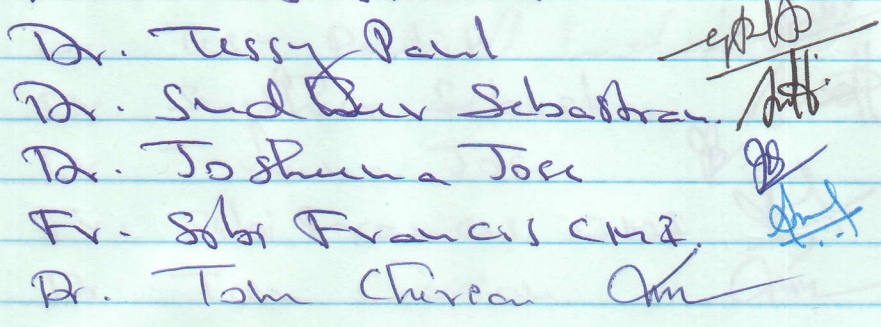 Dr. Tessy Paul
Dr. Sudheer Sebastian.
Dr. Josheena Jose
Fr. Sibi Francis CMI.
Dr. Tom Cherian